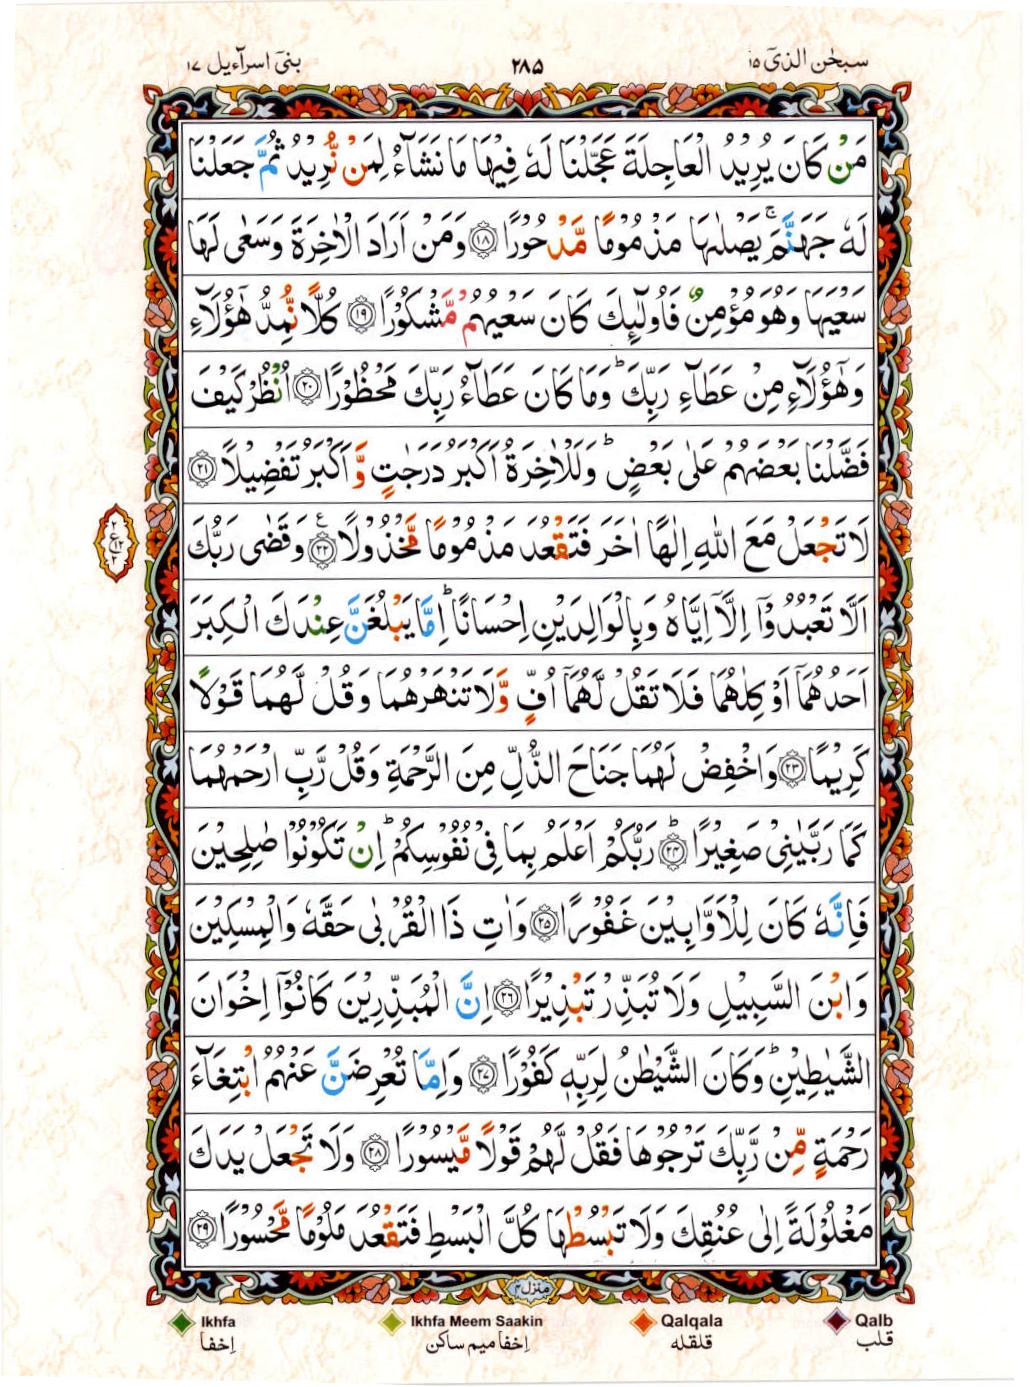 سبحٰن الذیٓ ۱۵ ۲۸۵ بنیٓ اسرآءیل ۱۷
مَنْ كَانَ يُرِيْدُ الْعَاجِلَةَ عَجَّلْنَا لَهٗ فِيْهَا مَا نَشَآءُ لِمَنْ نُّرِيْدُ ثُمَّ جَعَلْنَا
لَهٗ جَهَنَّمَ ۚ يَصْلٰىهَا مَذْمُوْمًا مَّدْحُوْرًا ﴿۱۸﴾ وَمَنْ اَرَادَ الْاٰخِرَةَ وَسَعٰى لَهَا
سَعْيَهَا وَهُوَ مُؤْمِنٌ فَاُولٰٓئِكَ كَانَ سَعْيُهُمْ مَّشْكُوْرًا ﴿۱۹﴾ كُلًّا نُّمِدُّ هٰٓؤُلَآءِ
وَهٰٓؤُلَآءِ مِنْ عَطَآءِ رَبِّكَ ؕ وَمَا كَانَ عَطَآءُ رَبِّكَ مَحْظُوْرًا ﴿۲۰﴾ اُنْظُرْ كَيْفَ
فَضَّلْنَا بَعْضَهُمْ عَلٰى بَعْضٍ ؕ وَلَلْاٰخِرَةُ اَكْبَرُ دَرَجٰتٍ وَّاَكْبَرُ تَفْضِيْلًا ﴿۲۱﴾
لَا تَجْعَلْ مَعَ اللّٰهِ اِلٰهًا اٰخَرَ فَتَقْعُدَ مَذْمُوْمًا مَّخْذُوْلًا ﴿۲۲﴾ ع وَقَضٰى رَبُّكَ
اَلَّا تَعْبُدُوْٓا اِلَّآ اِيَّاهُ وَبِالْوَالِدَيْنِ اِحْسَانًا ؕ اِمَّا يَبْلُغَنَّ عِنْدَكَ الْكِبَرَ
اَحَدُهُمَآ اَوْ كِلٰهُمَا فَلَا تَقُلْ لَّهُمَآ اُفٍّ وَّلَا تَنْهَرْهُمَا وَقُلْ لَّهُمَا قَوْلًا
كَرِيْمًا ﴿۲۳﴾ وَاخْفِضْ لَهُمَا جَنَاحَ الذُّلِّ مِنَ الرَّحْمَةِ وَقُلْ رَّبِّ ارْحَمْهُمَا
كَمَا رَبَّيٰنِيْ صَغِيْرًا ﴿۲۴﴾ ؕ رَبُّكُمْ اَعْلَمُ بِمَا فِيْ نُفُوْسِكُمْ ؕ اِنْ تَكُوْنُوْا صٰلِحِيْنَ
فَاِنَّهٗ كَانَ لِلْاَوَّابِيْنَ غَفُوْرًا ﴿۲۵﴾ وَاٰتِ ذَا الْقُرْبٰى حَقَّهٗ وَالْمِسْكِيْنَ
وَابْنَ السَّبِيْلِ وَلَا تُبَذِّرْ تَبْذِيْرًا ﴿۲۶﴾ اِنَّ الْمُبَذِّرِيْنَ كَانُوْٓا اِخْوَانَ
الشَّيٰطِيْنِ ؕ وَكَانَ الشَّيْطٰنُ لِرَبِّهٖ كَفُوْرًا ﴿۲۷﴾ وَاِمَّا تُعْرِضَنَّ عَنْهُمُ ابْتِغَآءَ
رَحْمَةٍ مِّنْ رَّبِّكَ تَرْجُوْهَا فَقُلْ لَّهُمْ قَوْلًا مَّيْسُوْرًا ﴿۲۸﴾ وَلَا تَجْعَلْ يَدَكَ
مَغْلُوْلَةً اِلٰى عُنُقِكَ وَلَا تَبْسُطْهَا كُلَّ الْبَسْطِ فَتَقْعُدَ مَلُوْمًا مَّحْسُوْرًا ﴿۲۹﴾
منزل ۴
Ikhfa Ikhfa Meem Saakin Qalqala Qalb
اِخفا اِخفا میم ساکن قلقله قلب